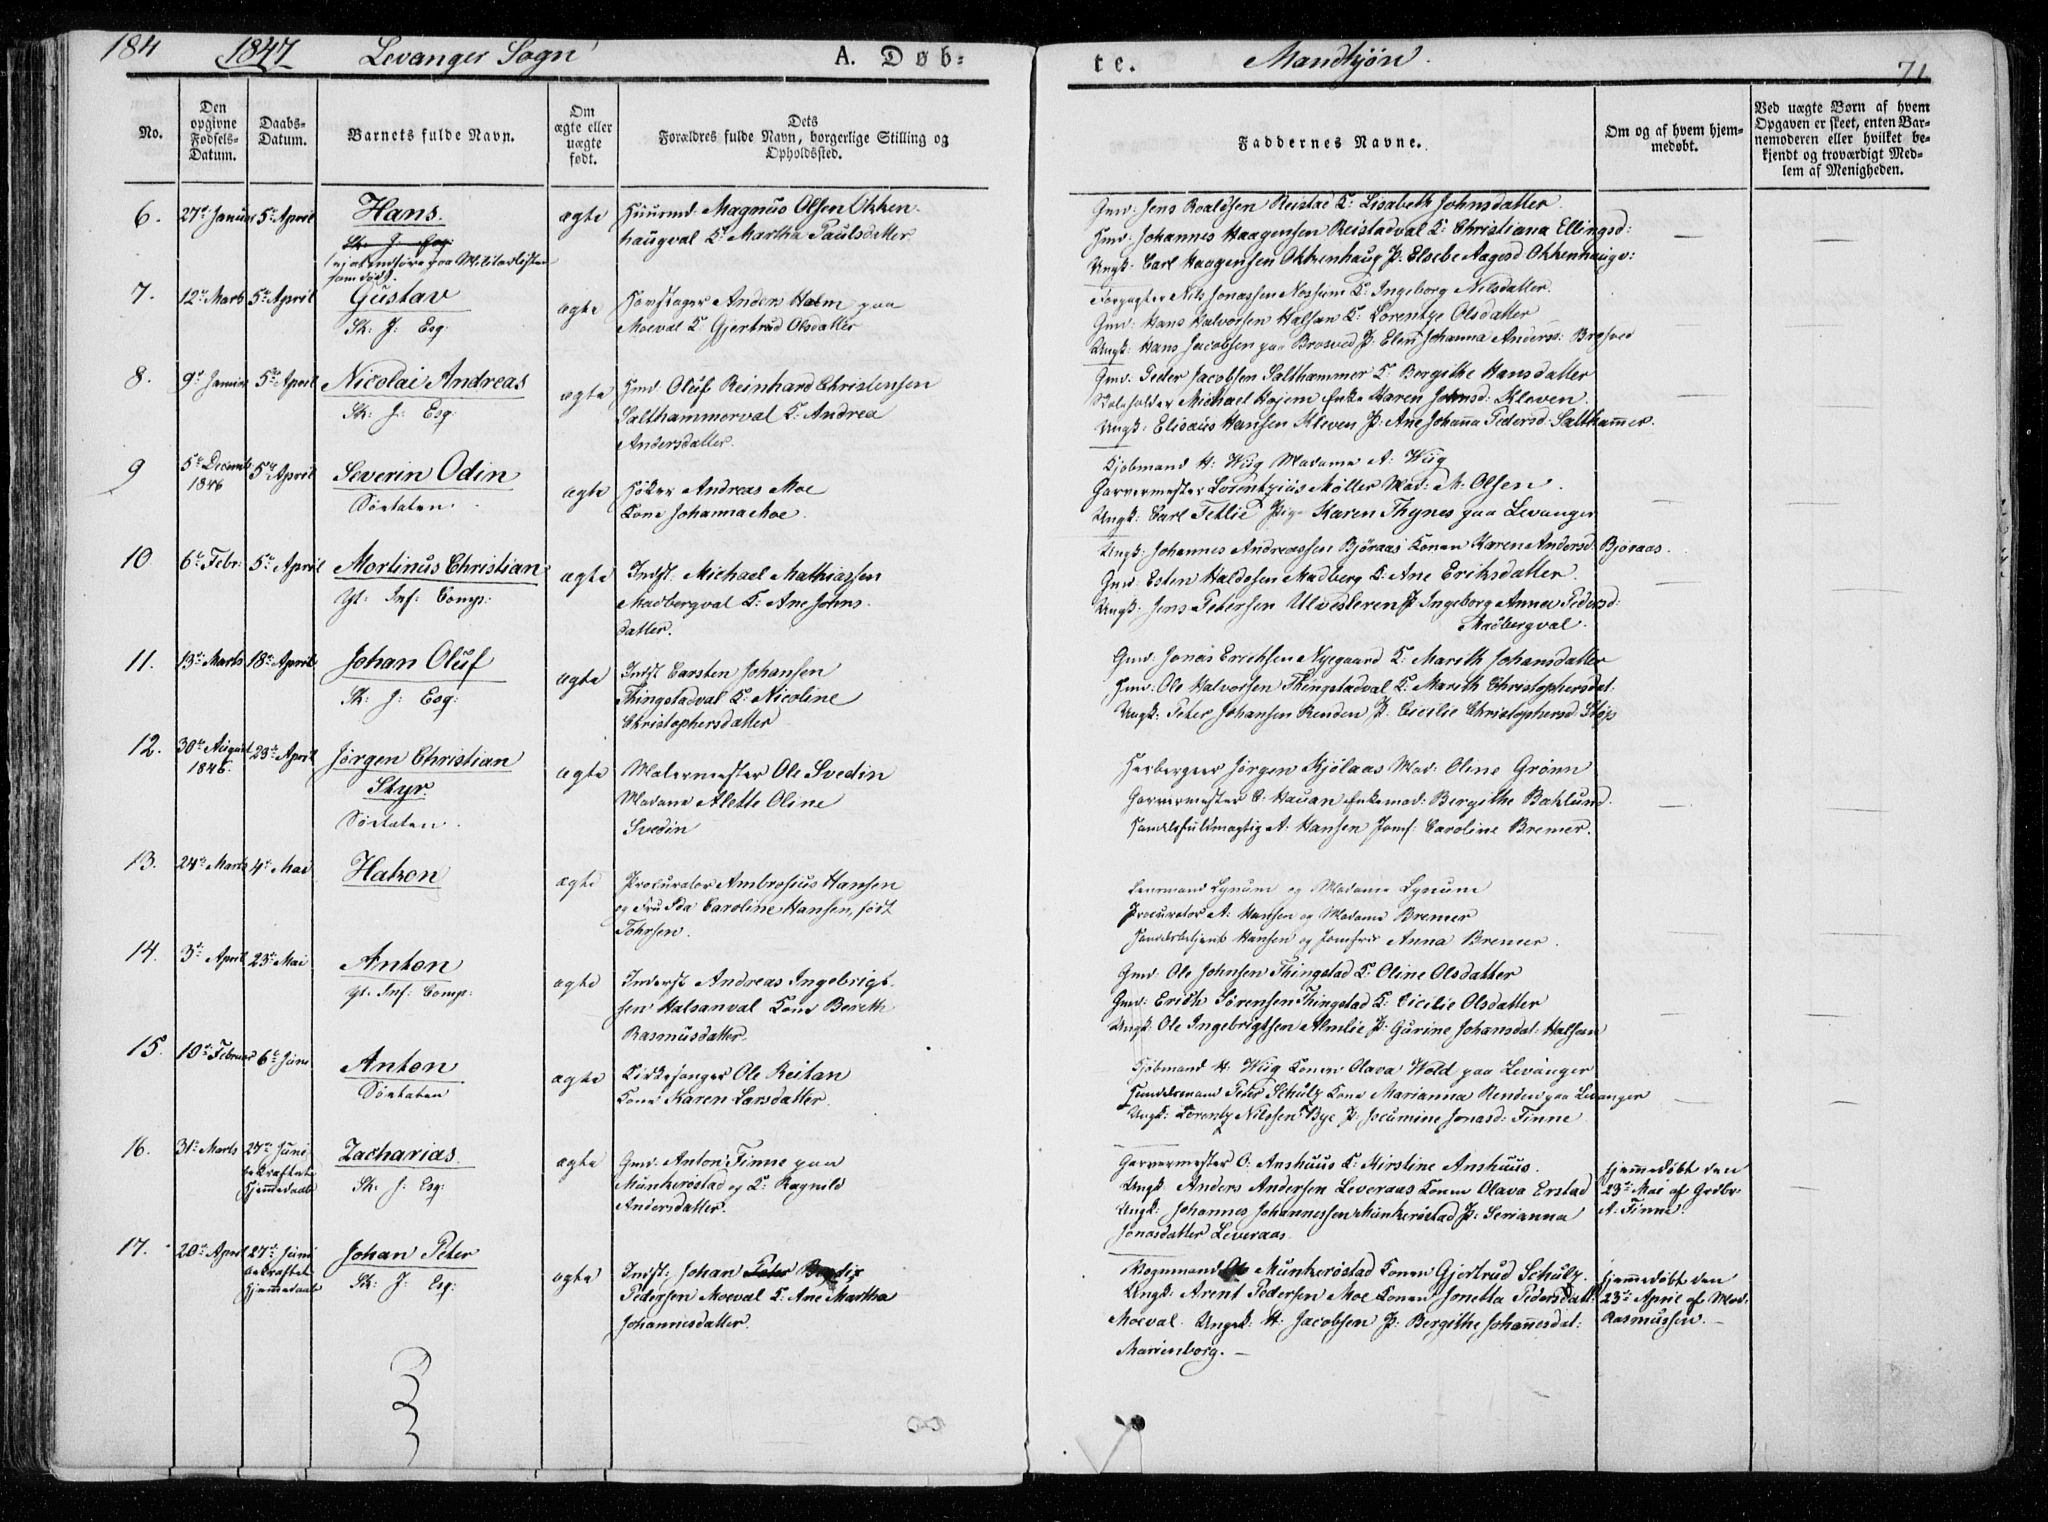 184 1847 Levanger Sogn A. Døb-
te. Mandkjøn. 71
No.
Den opgivne Fødsels-Datum.
Daabs-Datum.
Barnets fulde Navn.
Om ægte eller uægte født.
Dets Forældres fulde Navn, borgerlige Stilling og Opholdssted.
Faddernes Navne.
Om og af hvem hjem-
medøbt.
Ved uægte Børn af hvem
Opgaven er skeet, enten Bar-
nemoderen eller hvilket be-
kjendt og troværdigt Med-
lem af Menigheden.
6. 27de Januar 5te April Hans. ægte Huusmd. Magnus Olsen Okken-
haugval K. Martha Paulsdatter.
Gmd: Jens Roaldsen Reistad K: Lisabeth Johnsdatter
Hmd: Johannes Haagensen Reistadval K: Christiana Ellingsd:
Ungk. Carl Haagensen Okkenhaug P. Elsebe Aagesd Okkenhaugv:
7. 12te Marts 5te April Gustav ægte Anders Holm paa
Sk: J: Esq: Moeval K. Gjertrud Olsdatter
Forpagter Nils Jonassen Nossum K. Ingeborg Nilsdatter.
Gmd: Hans Halvorsen Halsan K: Lorentze Olsdatter
Ungk: Hans Jacobsen paa Brosved P. Elen Johanna Anders: Brosved
8. 9de Januar 5te April Nicolai Andreas ægte Hmd Oluf Reinhard Christensen
Sk: J: Esq: Salthammerval K. Andrea
Andersdatter.
Gmd. Peder Jacobsen Salthammer K. Bergithe Hansdatter
Skoleholder Michael Hojem Enke Karen Johnsd: Kleven.
Ungk: Elisæus Hansen Kleven P. Ane Johanna Pedersd: Salthammer.
9 5te Decemb 1846 5te April Severin Odin ægte Høker Andreas Moe
Søetaten. Kone Johanna Moe.
Kjøbmand H: Wiig Madame A: Wiig
Garvermester Lorentzius Møller Mad: M. Olsen.
Ungk: Carl Tetlie Pige Karen Thynes paa Levanger
10 6te Febr: 5te April Mortinus Christian ægte Indst: Michael Mathiassen
Yt: Inf: Comp: Madbergval K: Ane Johns-
datter.
Ungk: Johannes Andreassen Bjøraas Konen Karen Andersd Bjøraas.
Gmd: Esten Haldosen Madberg K: Ane Eriksdatter.
Ungk: Jens Petersen Ulvesteren P. Ingeborg Anna Pedersd:
Madbergval.
11. 13de Marts 18de April Johan Oluf ægte Indst Carsten Johansen
Sk: J: Esq: Thingstadval K: Nicoline
Christophersdatter
Gmd: Jonas Erichsen Nyegaard K: Marith Johansdatter
Hmd: Ole Halvorsen Thingstadval K. Marith Christophersdat:
Ungk: Peter Johansen Renden P. Cicilie Christophersd Støp
12. 30te August 1846. 23de April Jørgen Christian ægte Malermester Ole Svedin
Styr. Madame Alette Oline
Søetaten. Svedin
Herbergeer Jørgen Kjølaas Mad: Oline Grønn
Garvermester O: Hauan Enkemad: Bergithe Baklund.
Handelsfuldmægtig A. Hansen Jomf: Caroline Bremer.
13. 24de Marts 4de Mai Hakon ægte Procurator Ambrosius Hansen
og Fru Ida Caroline Hansen, født
Fohrsen.
Lensmand Lynum og Madame Lynum
Procurator A: Hansen og Madame Bremer
Handelsbetjent Hansen og Jomfrue Anna Bremer.
14. 3de April 23de Mai Anton ægte Inderst Andreas Ingebrigt-
Yt. Inf: Comp: sen Halsanval Kone Bereth
Rasmusdatter.
Gmd: Ole Johnsen Thingstad K. Oline Olsdatter
Gmd: Erich Sørensen Thingstad K: Cicilie Olsdatter
Ungk: Ole Ingebrigtsen Almlie P: Gurine Johansdat: Halsan
15. 19de Februar 6te Juni Anton ægte Kirkesanger Ole Reitan
Søetaten Kone Karen Larsdatter.
Kjøbmand H: Wiig Konen Olava Wold paa Levanger
Handelsmand Peter Schulz Kone Marianna Renden paa Levanger
Ungk: Lorentz Nilssen Bye P. Jonasd: Finne
16. 31te Marts 27de Juni bekræftet Hjemmedaab Zacharias. ægte Gmd: Anton Finne paa
Sk: J: Esq: Munkerøstad og K: Ragnild
Andersdatter.
Garvermester O: Anshuus K: Kirstine Anshuus.
Ungk: Anders Andersen Leveraas Konen Olava Erstad
Ungk: Johannes Johannessen Munkerøstad P: Serianna
Jonasdatter Leveraas
Hjemmedøbt den
23de Mai af Grdbr
A: Finne.
17. 20de April 27de Juni bekræftet Hjemmedaab Johan Peter ægte Indst: Johan Peter
Sk: J: Esq: Pedersen Moeval K: Ane Martha
Johannesdatter.
Vognmand Ole Munkerøstad Konen Gjertrud Schulz.
Ungk: Arent Pedersen Moe Konen Jonetta Pedersdatt:
Moeval. Ungk: H. Jacobsen P: Bergithe Johannesdat:
Marienborg.
Hjemmedøbt den
23de April af Mad:
Rasmussen.